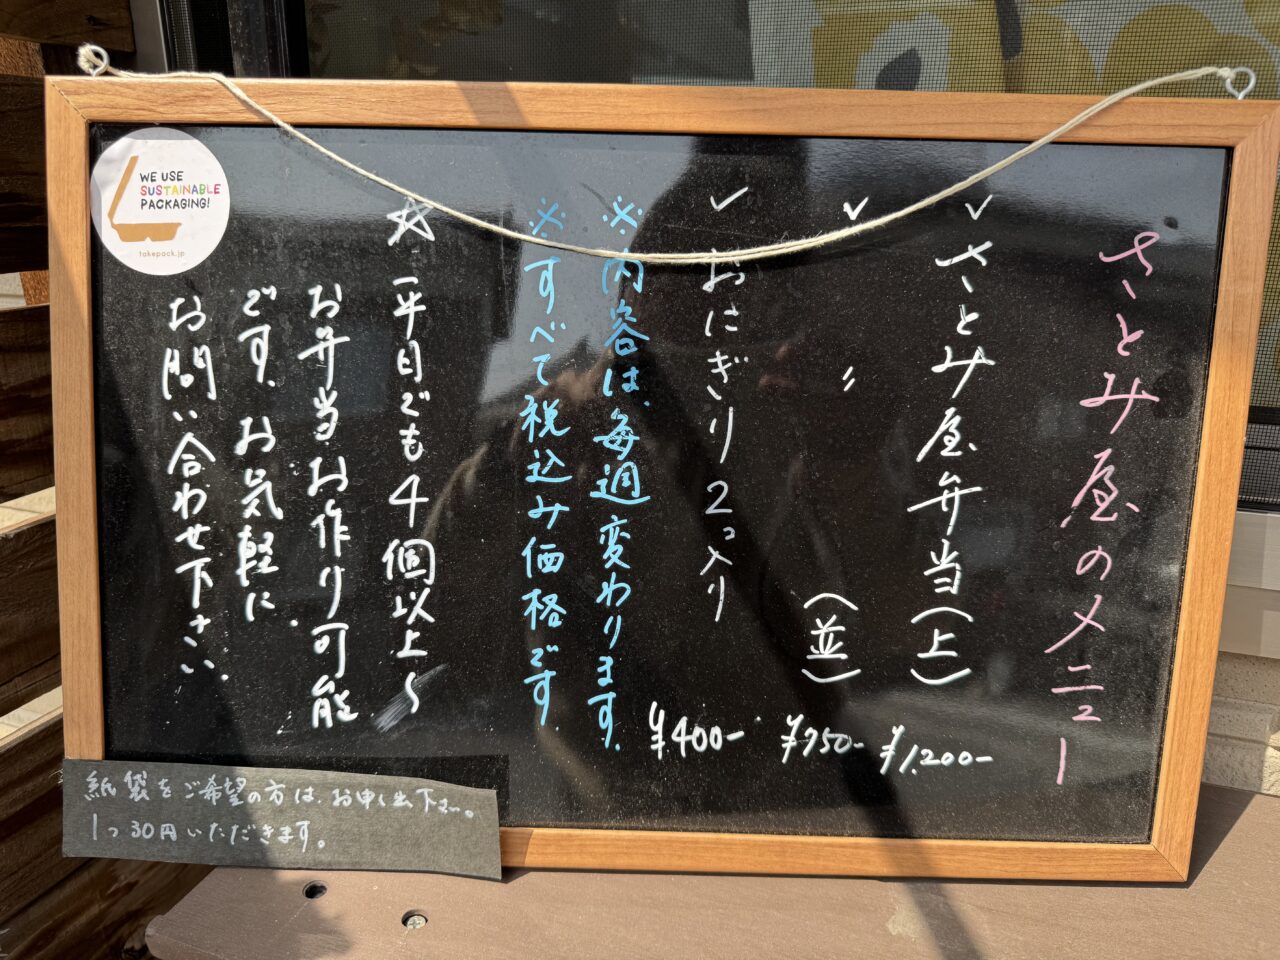 さとみ屋のメニュー
✓さとみ屋弁当(上) ¥1,200-
✓〃(並) ¥750-
✓おにぎり2コ入り ¥400-
※内容は、毎週変わります。
※すべて税込み価格です
☆平日でも4個以上〜
お弁当お作り可能
です、お気軽に
お問い合わせ下さい。
紙袋をご希望の方は、お申し出下さい。
1つ30円いただきます。
WE USE
SUSTAINABLE
PACKAGING!
takepack.jp